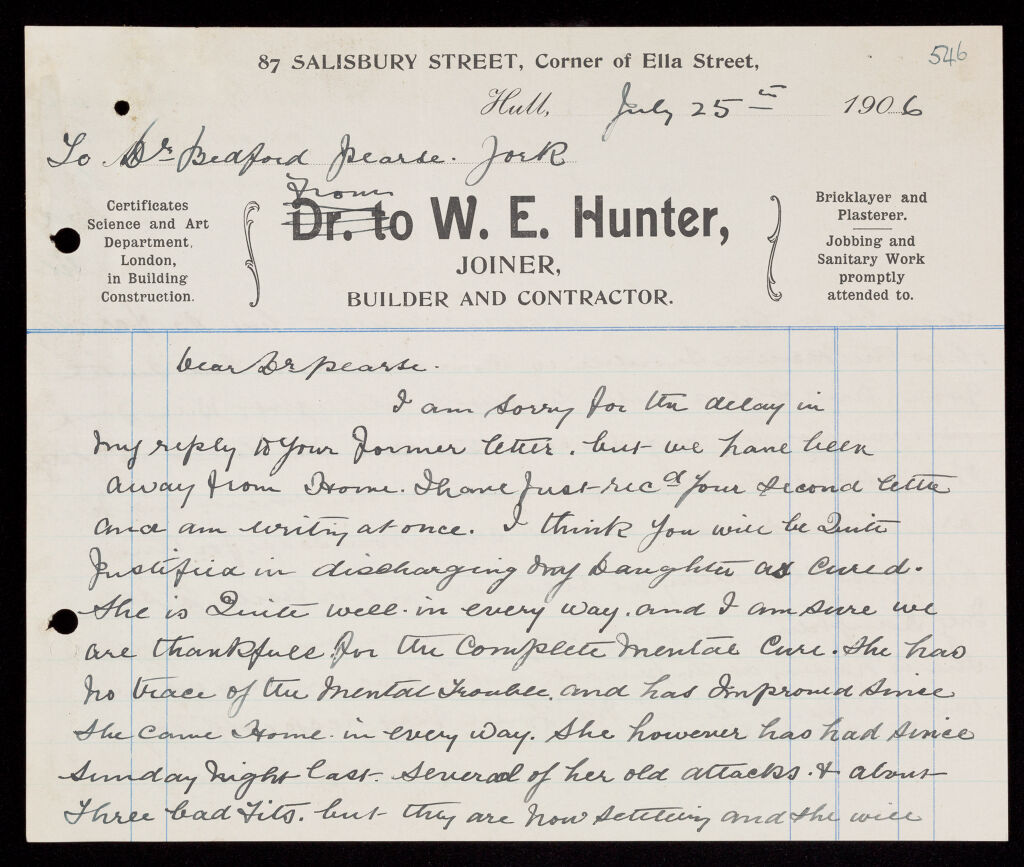 546
87 SALISBURY STREET, Corner of Ella Street,
Hull, July 25th 1906
To Dr Bedford Pearse. York
from
Dr. to W. E. Hunter,
JOINER,
BUILDER AND CONTRACTOR.
Certificates
Science and Art
Department,
London,
in Building
Construction.
Bricklayer and
Plasterer.
Jobbing and
Sanitary Work
promptly
attended to.
Dear Dr Pearse.
I am sorry for the delay in
my reply to your former letter. but we have been
away from Home. I have Just rec'd your second lette
and am writing at once. I think you will be Quite
Justified in discharging my Daughter as Cured.
She is Quite well in every way. and I am sure we
are thankfull for the Complete Mental Cure. She has
no trace of the Mental Trouble. and has Improved since
she came Home in every way. She however has had since
Sunday Night last several of her old attacks. & about
Three bad Fits. but they are now settling and she will